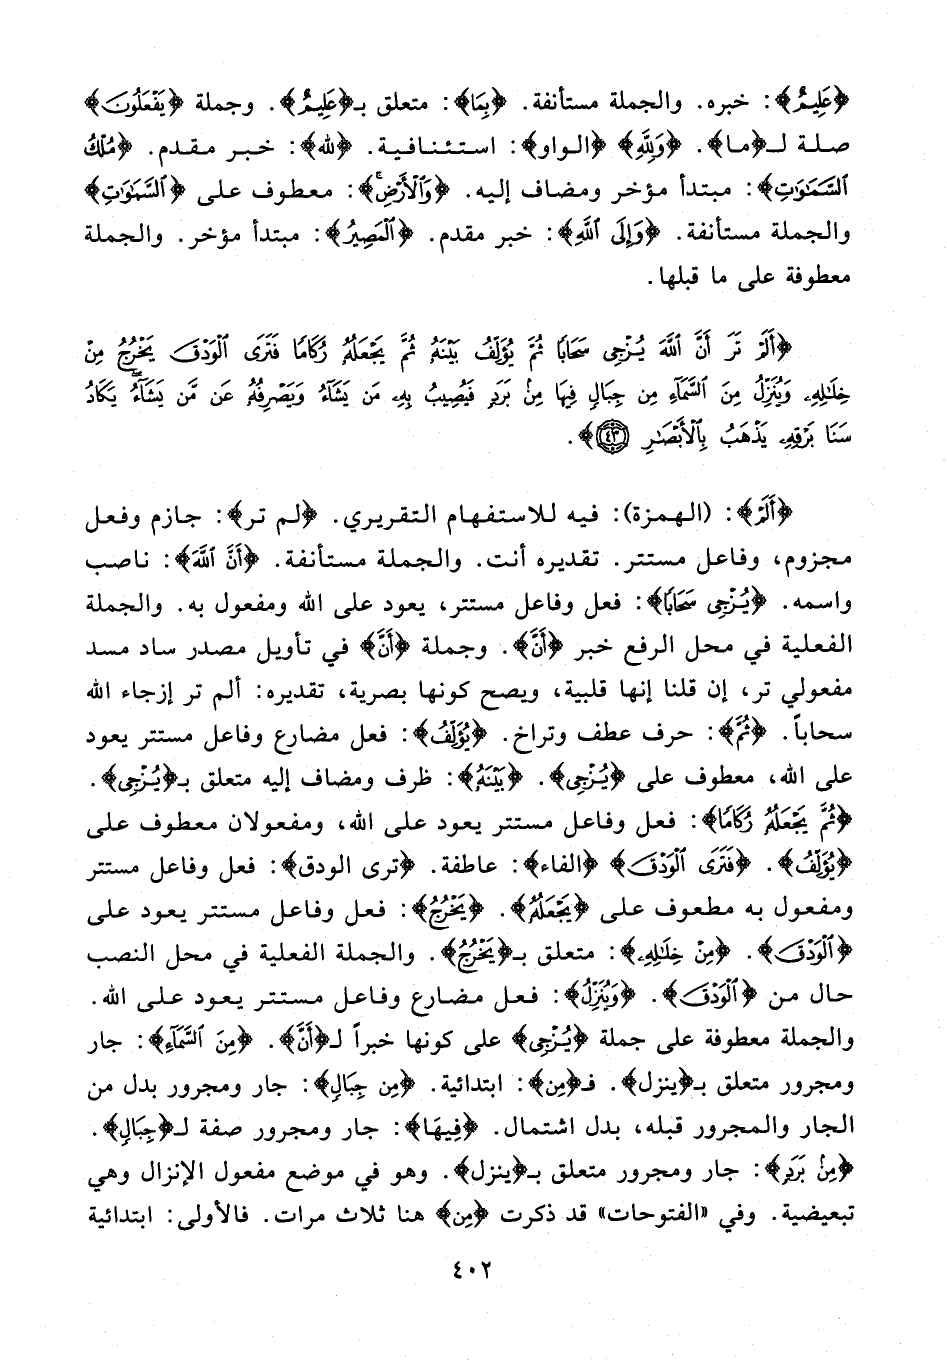 ﴿عَلِيمٌ﴾: خبره. والجملة مستأنفة. ﴿بِمَا﴾: متعلق بـ﴿عَلِيمٌ﴾. وجملة ﴿يَفْعَلُونَ﴾
صلة لـ﴿ما﴾. ﴿وَلِلَّهِ﴾ ﴿الواو﴾: استئنافية. ﴿لله﴾: خبر مقدم. ﴿مُلْكُ
ٱلسَّمَٰوَٰتِ﴾: مبتدأ مؤخر ومضاف إليه. ﴿وَٱلْأَرْضِ﴾: معطوف على ﴿ٱلسَّمَٰوَٰتِ﴾
والجملة مستأنفة. ﴿وَإِلَى ٱللَّهِ﴾: خبر مقدم. ﴿ٱلْمَصِيرُ﴾: مبتدأ مؤخر. والجملة
معطوفة على ما قبلها.
﴿أَلَمْ تَرَ أَنَّ ٱللَّهَ يُزْجِى سَحَابًا ثُمَّ يُؤَلِّفُ بَيْنَهُۥ ثُمَّ يَجْعَلُهُۥ رُكَامًا فَتَرَى ٱلْوَدْقَ يَخْرُجُ مِنْ
خِلَٰلِهِۦ وَيُنَزِّلُ مِنَ ٱلسَّمَآءِ مِن جِبَالٍ فِيهَا مِنۢ بَرَدٍ فَيُصِيبُ بِهِۦ مَن يَشَآءُ وَيَصْرِفُهُۥ عَن مَّن يَشَآءُ ۖ يَكَادُ
سَنَا بَرْقِهِۦ يَذْهَبُ بِٱلْأَبْصَٰرِ ٤٣﴾.
﴿أَلَمْ﴾: (الهمزة): فيه للاستفهام التقريري. ﴿لم تر﴾: جازم وفعل
مجزوم، وفاعل مستتر. تقديره أنت. والجملة مستأنفة. ﴿أَنَّ ٱللَّهَ﴾: ناصب
واسمه. ﴿يُزْجِى سَحَابًا﴾: فعل وفاعل مستتر، يعود على الله ومفعول به. والجملة
الفعلية في محل الرفع خبر ﴿أَنَّ﴾. وجملة ﴿أَنَّ﴾ في تأويل مصدر ساد مسد
مفعولي تر، إن قلنا إنها قلبية، ويصح كونها بصرية، تقديره: ألم تر إزجاء الله
سحاباً. ﴿ثُمَّ﴾: حرف عطف وتراخ. ﴿يُؤَلِّفُ﴾: فعل مضارع وفاعل مستتر يعود
على الله، معطوف على ﴿يُزْجِى﴾. ﴿بَيْنَهُۥ﴾: ظرف ومضاف إليه متعلق بـ﴿يُزْجِى﴾.
﴿ثُمَّ يَجْعَلُهُۥ رُكَامًا﴾: فعل وفاعل مستتر يعود على الله، ومفعولان معطوف على
﴿يُؤَلِّفُ﴾. ﴿فَتَرَى ٱلْوَدْقَ﴾ ﴿الفاء﴾: عاطفة. ﴿ترى الودق﴾: فعل وفاعل مستتر
ومفعول به مطعوف على ﴿يَجْعَلُهُۥ﴾. ﴿يَخْرُجُ﴾: فعل وفاعل مستتر يعود على
﴿ٱلْوَدْقَ﴾. ﴿مِنْ خِلَٰلِهِۦ﴾: متعلق بـ﴿يَخْرُجُ﴾. والجملة الفعلية في محل النصب
حال من ﴿ٱلْوَدْقَ﴾. ﴿وَيُنَزِّلُ﴾: فعل مضارع وفاعل مستتر يعود على الله.
والجملة معطوفة على جملة ﴿يُزْجِى﴾ على كونها خبراً لـ﴿أَنَّ﴾. ﴿مِنَ ٱلسَّمَآءِ﴾: جار
ومجرور متعلق بـ﴿ينزل﴾. فـ﴿مِن﴾: ابتدائية. ﴿مِن جِبَالٍ﴾: جار ومجرور بدل من
الجار والمجرور قبله، بدل اشتمال. ﴿فِيهَا﴾: جار ومجرور صفة لـ﴿جِبَالٍ﴾.
﴿مِنۢ بَرَدٍ﴾: جار ومجرور متعلق بـ﴿ينزل﴾. وهو في موضع مفعول الإنزال وهي
تبعيضية. وفي «الفتوحات» قد ذكرت ﴿مِن﴾ هنا ثلاث مرات. فالأولى: ابتدائية
٤٠٢